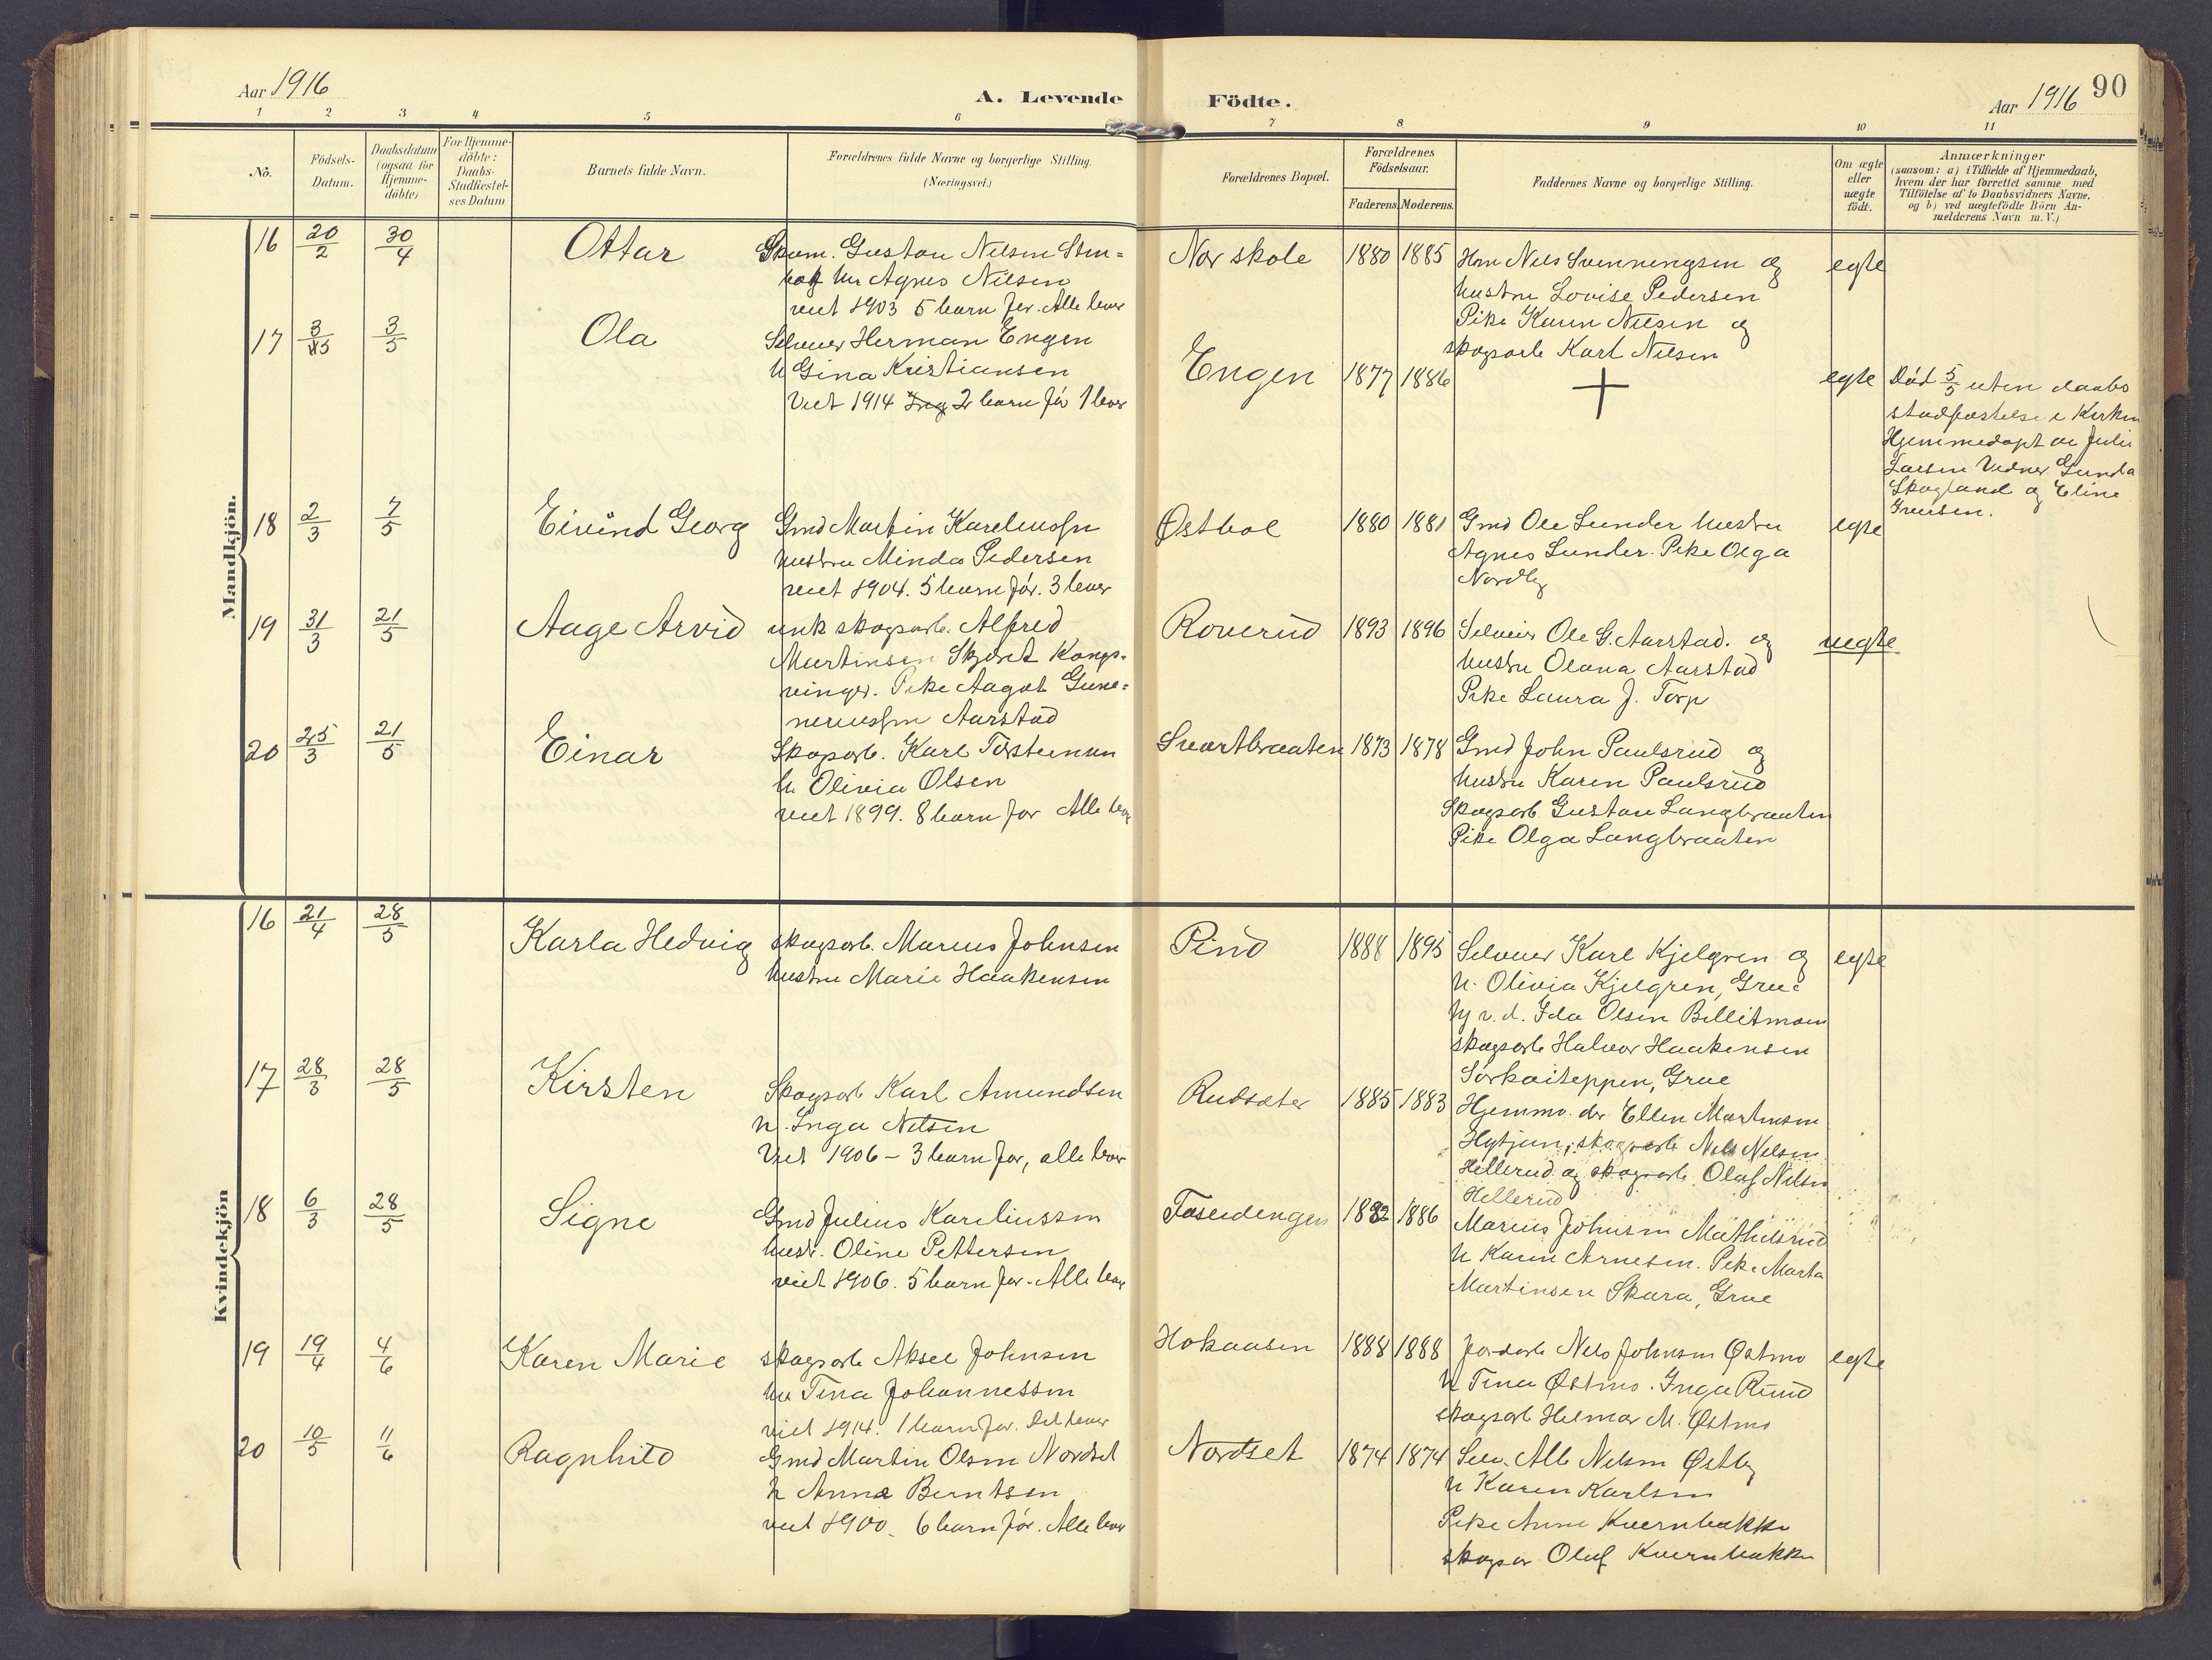 Aar 1916
A. Levende
Födte.
Aar 1916
90
1 2 3 4 5 6 7 8 9 10 11
No.
Födsels-
Datum.
Daabsdatum
(ogsaa for
Hjemme-
döbte)
For Hjemme-
döbte:
Daabs-
Stadfæstel-
ses Datum
Barnets fulde Navn.
Forældrenes fulde Navne og borgerlige Stilling.
(Næringsvei.)
Forældrenes Bopæl.
Forældrenes
Födselsaar.
Faderens. Moderens.
Faddernes Navne og borgerlige Stilling.
Om ægte
eller
uægte
födt.
Anmærkninger
(saasom: a) i Tilfælde af Hjemmedaab,
hvem der har forrettet samme med
Tilföielse af to Daabsvidners Navne,
og b) ved uægtefödte Börn An-
melderens Navn m. V.)
Mandkjön.
16 20/2 30/4 Ottar
Gustav Nilsen
Agnes Nilsen
viet 1903 5 barn før. Alle lever
Nor skole 1880 1885
Nils Svenningsen og
hustru Lovise Pedersen
Pike Karen Nilsen og
skogsarb Karl Nilsen
egte
17 3/5 3/5 Ola
Selveier Herman Engen
h Gina Kristiansen
Viet 1914 2 barn før 1 lever
Engen 1877 1886
+
egte
Død 5/5 uten daabs
stadfæstelse i Kirken
Hjemmedøpt av
Larsen Vidner Gunda
Skogland og Eline
Iversen.
18 2/3 7/5 Eivind Georg
Gmd Martin Kareliussen
hustru Minda Pedersen
viet 1904. 5 barn før. 3 lever
Østbøl 1880 1881
Gmd Ole Sunder hustru
Agnes Sunder. Pike Olga
Nordby
egte
19 31/3 21/5 Aage Arvid
unk skogsarb. Alfred
Martinsen Skjøret Kongs-
vinger. Pike Aagot
Aarstad
Roverud 1893 1896
Selveier Ole G. Aarstad. og
hustru Olava Aarstad
Pike Laura J. Torp
uegte
20 25/3 21/5 Einar
Skogsarb. Karl Torstensen
h. Olivia Olsen
viet 1899. 8 barn før Alle lever
Svartbraaten 1873 1878
Gmd John Paulsrud og
hustru Karen Paulsrud
Skogsarb Gustav Langbraaten
Pike Olga Langbraaten
Kvindekjön
16 21/4 28/5 Karla Hedvig
skogsarb. Marius Johnsen
hustru Marie Haakensen
Pind 1888 1895
Selveier Karl Kjelgren og
h. Olivia Kjelgren, Grue
Ida Olsen
skogsarb Halvor Haakensen
Grue
egte
17 28/3 28/5 Kirsten
Skogsarb Karl Amundsen
h. Inga Nilsen
Viet 1906 - 3 barn før, alle lever
Rudsæter 1885 1883
Hjemmv. dr Ellen Martinsen
Hytjan, skogsarb Nils Nilsen
Hellerud og skogsarb. Olaf Nilsen
Hellerud
18 6/3 28/5 Signe
Gmd Julius Kareliussen
hustr. Oline Pettersen
viet 1906. 5 barn før. Alle lever
1882 1886
Marius Johnsen Mathilsrud
h Karen Arnesen. Pike Marta
Martinsen Skara, Grue
19 19/4 4/6 Karen Marie
skogsarb Aksel Johnsen
hu Tina Johannessen
viet 1914. 1 barn før. Det lever
Hokaasen 1888 1888
jordarb Nils Johnsen Østmo
h Tina Østmo. Inga Ruud
skogsarb Helmar M. Østmo
egte
20 10/5 11/6 Ragnhild
Gmd Martin Olsen Nordset
h Anna Berntsen
viet 1900. 6 barn før. Alle lever
Nordset 1874 1874
Selv. Alb Nilsen Østby
h Karen Karlsen
Pike Anne Kvernbakke
skogsar Olaf Kvernbakke